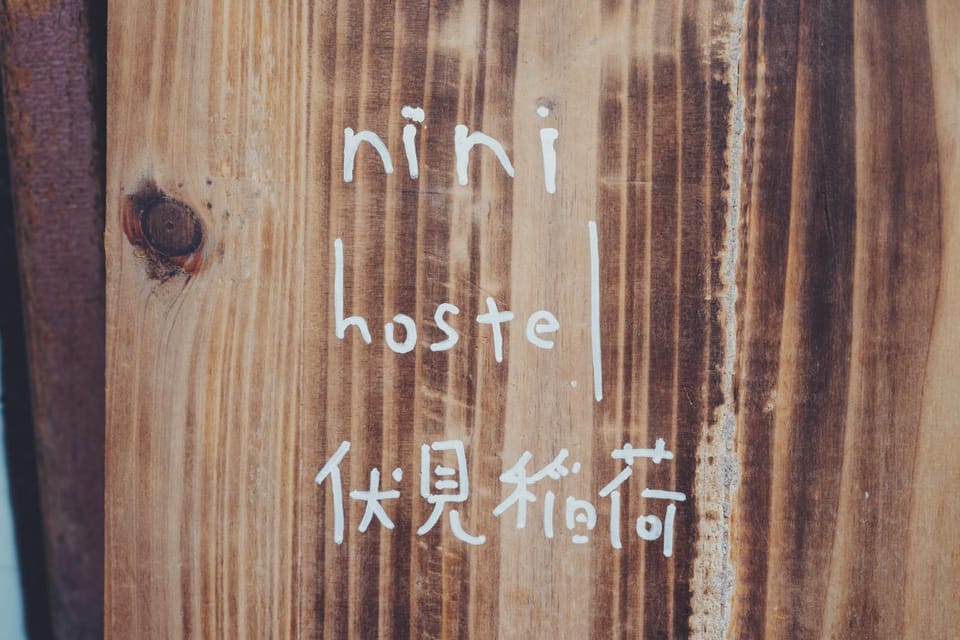 nini
hostel
伏見稲荷